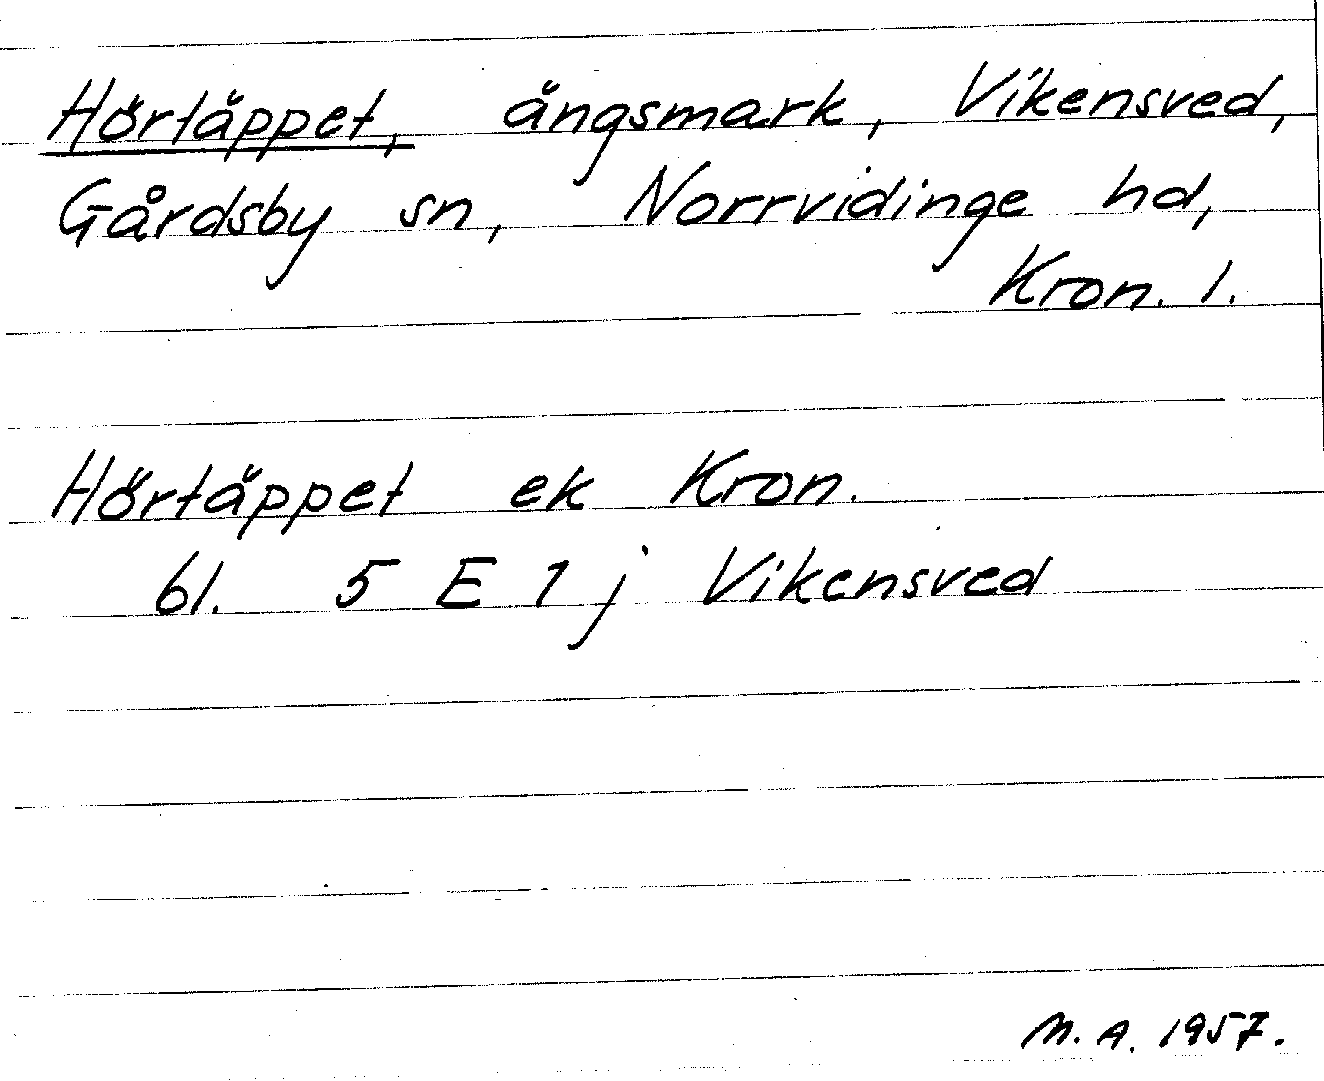 Hörtäppet, ängsmark, Vikensved,
Gårdsby sn, Norrvidinge hd,
Kron. l.
Hörtäppet ek Kron.
bl. 5 E 1 j Vikensved
M. A. 1957.